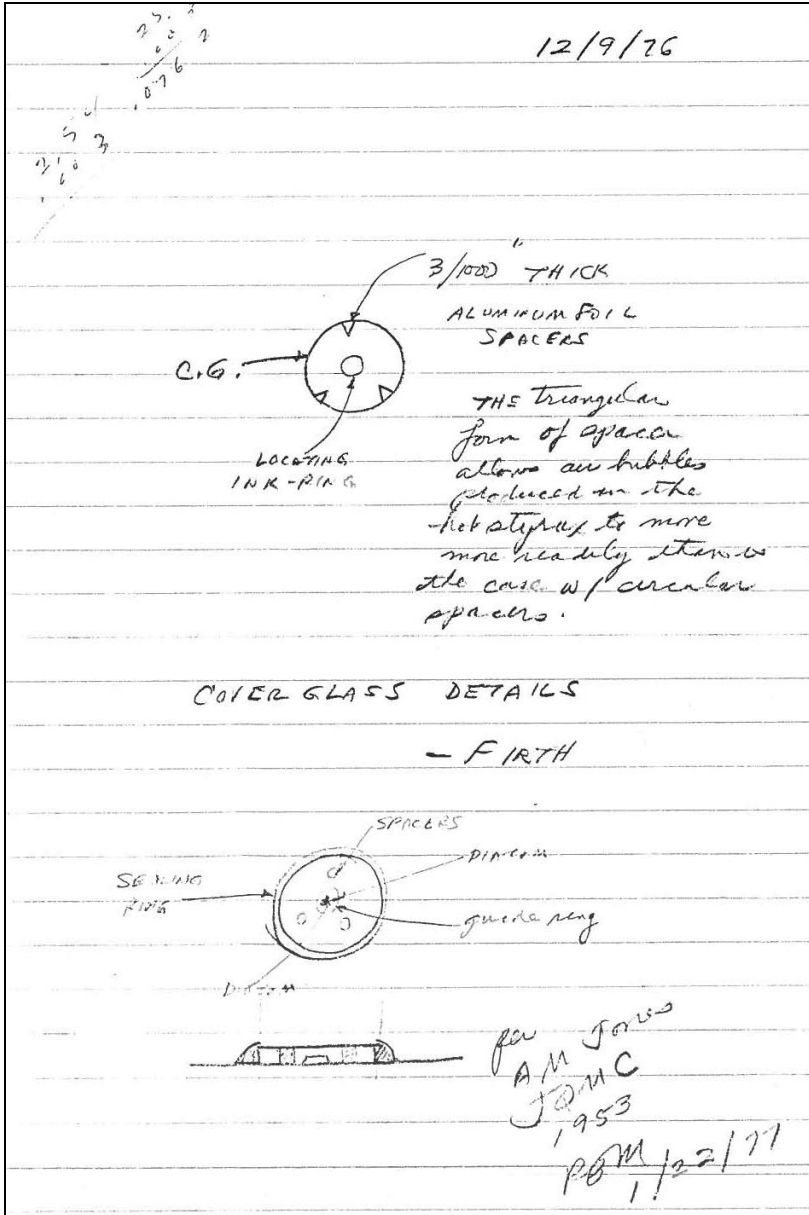 12/9/76
.076 2
2.54
.003
3/1000" THICK
ALUMINUM FOIL
SPACERS
C.G.
LOCATING
INK-RING
THE triangular
form of spacer
allows air bubbles
produced in the
hot styrax to move
more readily than is
the case w/ circular
spacers.
COVER GLASS DETAILS
- FIRTH
SPACERS
DIATOM
SEALING
RING
guide ring
DIATOM
per
AM Jones
JQMC
1953
PGM 1/22/77